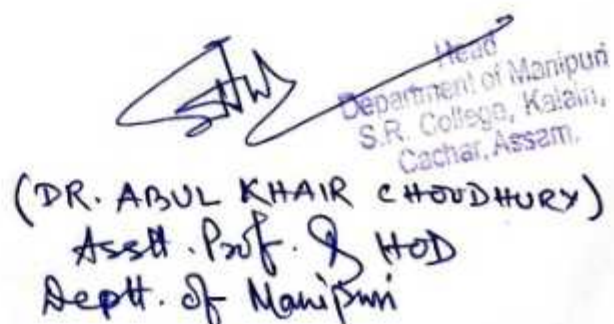 Head
Department of Manipuri
S.R. College, Kalain,
Cachar, Assam.
(DR. ABUL KHAIR CHOUDHURY)
Asstt. Prof. & HOD
Deptt. of Manipuri